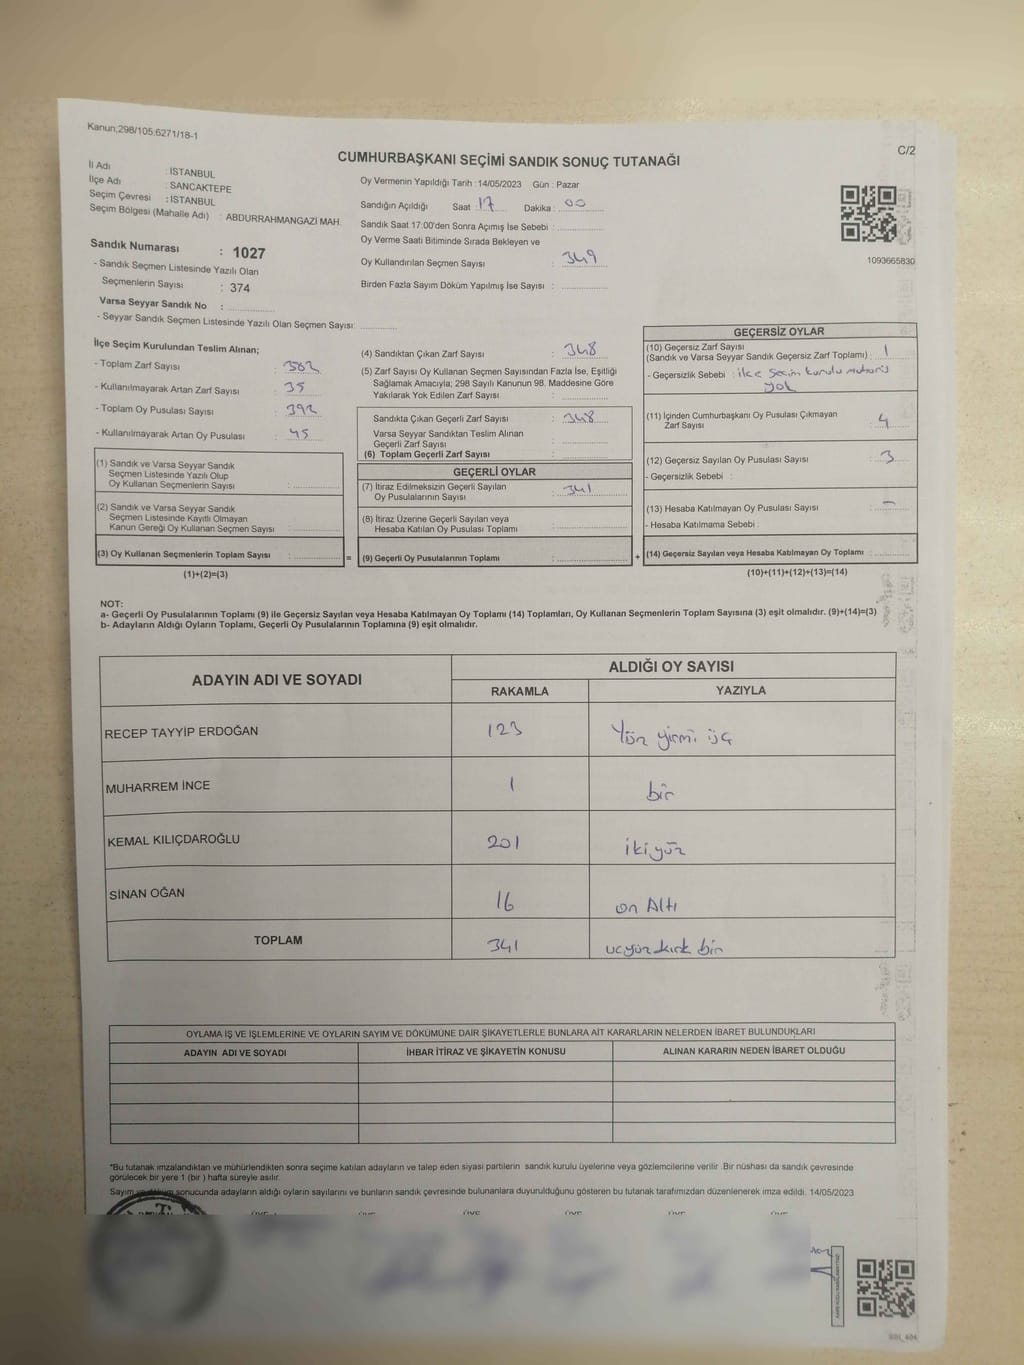 Kanun;298/105;6271/18-1
C/2
CUMHURBAŞKANI SEÇİMİ SANDIK SONUÇ TUTANAĞI
İl Adı : İSTANBUL
İlçe Adı : SANCAKTEPE
Seçim Çevresi : İSTANBUL
Seçim Bölgesi (Mahalle Adı) : ABDURRAHMANGAZİ MAH.
Sandık Numarası : 1027
- Sandık Seçmen Listesinde Yazılı Olan
Seçmenlerin Sayısı : 374
Varsa Seyyar Sandık No :
- Seyyar Sandık Seçmen Listesinde Yazılı Olan Seçmen Sayısı:
Oy Vermenin Yapıldığı Tarih : 14/05/2023 Gün : Pazar
Sandığın Açıldığı Saat : 17 Dakika : 00
Sandık Saat 17:00'den Sonra Açımış İse Sebebi :
Oy Verme Saati Bitiminde Sırada Bekleyen ve
Oy Kullandırılan Seçmen Sayısı : 349
Birden Fazla Sayım Döküm Yapılmış İse Sayısı :
1093665830
İlçe Seçim Kurulundan Teslim Alınan;
- Toplam Zarf Sayısı : 382
- Kullanılmayarak Artan Zarf Sayısı : 35
- Toplam Oy Pusulası Sayısı : 392
- Kullanılmayarak Artan Oy Pusulası : 45
(1) Sandık ve Varsa Seyyar Sandık
Seçmen Listesinde Yazılı Olup
Oy Kullanan Seçmenlerin Sayısı :
(2) Sandık ve Varsa Seyyar Sandık
Seçmen Listesinde Kayıtlı Olmayan
Kanun Gereği Oy Kullanan Seçmen Sayısı :
(3) Oy Kullanan Seçmenlerin Toplam Sayısı : =
(1)+(2)=(3)
(4) Sandıktan Çıkan Zarf Sayısı : 348
(5) Zarf Sayısı Oy Kullanan Seçmen Sayısından Fazla İse, Eşitliği
Sağlamak Amacıyla; 298 Sayılı Kanunun 98. Maddesine Göre
Yakılarak Yok Edilen Zarf Sayısı :
Sandıkta Çıkan Geçerli Zarf Sayısı : 348
Varsa Seyyar Sandıktan Teslim Alınan
Geçerli Zarf Sayısı :
(6) Toplam Geçerli Zarf Sayısı :
GEÇERLİ OYLAR
(7) İtiraz Edilmeksizin Geçerli Sayılan
Oy Pusulalarının Sayısı : 341
(8) İtiraz Üzerine Geçerli Sayılan veya
Hesaba Katılan Oy Pusulası Toplamı :
(9) Geçerli Oy Pusulalarının Toplamı : +
GEÇERSİZ OYLAR
(10) Geçersiz Zarf Sayısı
(Sandık ve Varsa Seyyar Sandık Geçersiz Zarf Toplamı) : 1
- Geçersizlik Sebebi : ilce Secim kurulu muhürü
yok
(11) İçinden Cumhurbaşkanı Oy Pusulası Çıkmayan
Zarf Sayısı : 4
(12) Geçersiz Sayılan Oy Pusulası Sayısı : 3
- Geçersizlik Sebebi :
(13) Hesaba Katılmayan Oy Pusulası Sayısı : -
- Hesaba Katılmama Sebebi :
(14) Geçersiz Sayılan veya Hesaba Katılmayan Oy Toplamı :
(10)+(11)+(12)+(13)=(14)
NOT:
a- Geçerli Oy Pusulalarının Toplamı (9) ile Geçersiz Sayılan veya Hesaba Katılmayan Oy Toplamı (14) Toplamları, Oy Kullanan Seçmenlerin Toplam Sayısına (3) eşit olmalıdır. (9)+(14)=(3)
b- Adayların Aldığı Oyların Toplamı, Geçerli Oy Pusulalarının Toplamına (9) eşit olmalıdır.
ADAYIN ADI VE SOYADI
ALDIĞI OY SAYISI
RAKAMLA YAZIYLA
RECEP TAYYİP ERDOĞAN 123 Yüz yirmi üç
MUHARREM İNCE 1 bir
KEMAL KILIÇDAROĞLU 201 ikiyüz
SİNAN OĞAN 16 on Altı
TOPLAM 341 ucyüz kırk bir
OYLAMA İŞ VE İŞLEMLERİNE VE OYLARIN SAYIM VE DÖKÜMÜNE DAİR ŞİKAYETLERLE BUNLARA AİT KARARLARIN NELERDEN İBARET BULUNDUKLARI
ADAYIN ADI VE SOYADI İHBAR İTİRAZ VE ŞİKAYETİN KONUSU ALINAN KARARIN NEDEN İBARET OLDUĞU
*Bu tutanak imzalandıktan ve mühürlendikten sonra seçime katılan adayların ve talep eden siyasi partilerin sandık kurulu üyelerine veya gözlemcilerine verilir .Bir nüshası da sandık çevresinde
görülecek bir yere 1 (bir ) hafta süreyle asılır.
Sayım ve döküm sonucunda adayların aldığı oyların sayılarını ve bunların sandık çevresinde bulunanlara duyurulduğunu gösteren bu tutanak tarafımızdan düzenlenerek imza edildi. 14/05/2023